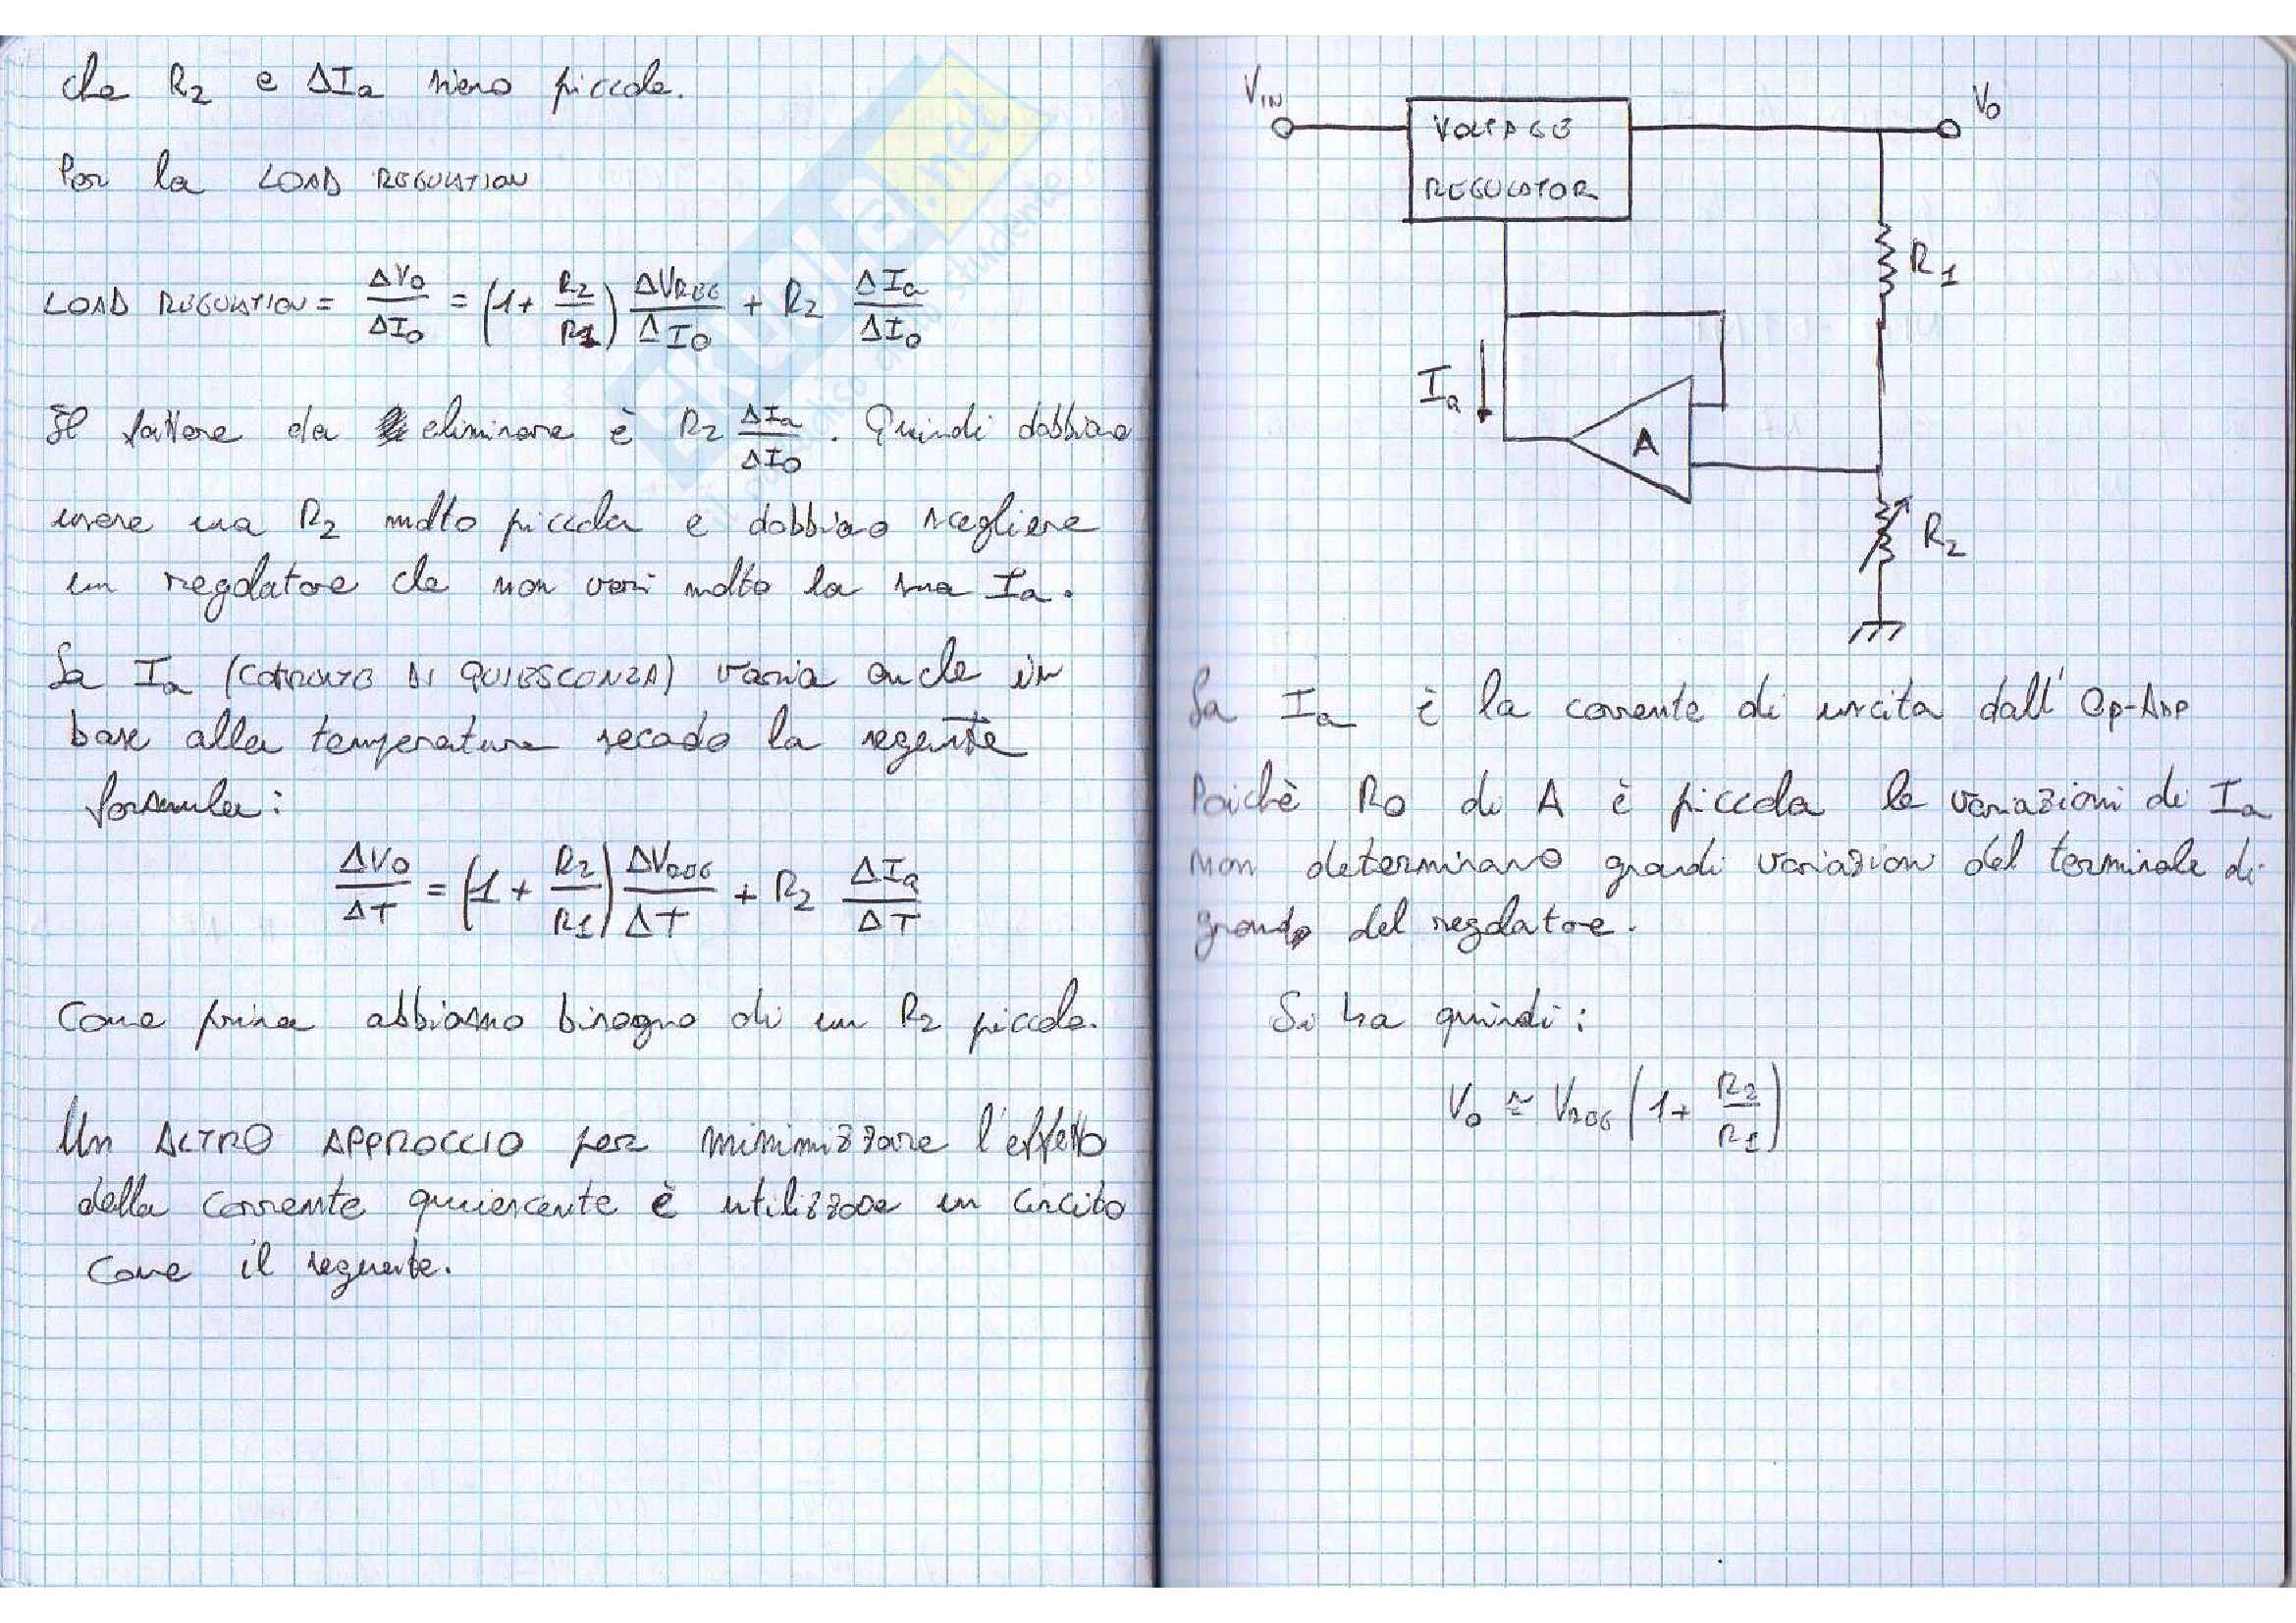 che R2 e ΔIa siano piccole.
Per la LOAD REGULATION
LOAD REGULATION = ΔVo/ΔIo = (1 + R2/R1) ΔVREG/ΔIo + R2 ΔIa/ΔIo
Il fattore da eliminare è R2 ΔIa/ΔIo. Quindi dobbiamo
usare una R2 molto piccola e dobbiamo scegliere
un regolatore che non vari molto la sua Ia.
La Ia (CORRENTE DI QUIESCENZA) varia anche in
base alla temperatura secondo la seguente
formula:
ΔVo/ΔT = (1 + R2/R1) ΔVREG/ΔT + R2 ΔIa/ΔT
Come prima abbiamo bisogno di un R2 piccola.
Un ALTRO APPROCCIO per minimizzare l'effetto
della corrente quiescente è utilizzare un circuito
come il seguente.
VIN
VOLTAGE
REGULATOR
Vo
R1
Ia
A
R2
La Ia è la corrente di uscita dall' Op-Amp
Poichè Ro di A è piccola le variazioni di Ia
non determinano grandi variazioni del terminale di
ground del regolatore.
Si ha quindi:
Vo ≃ VREG (1 + R2/R1)